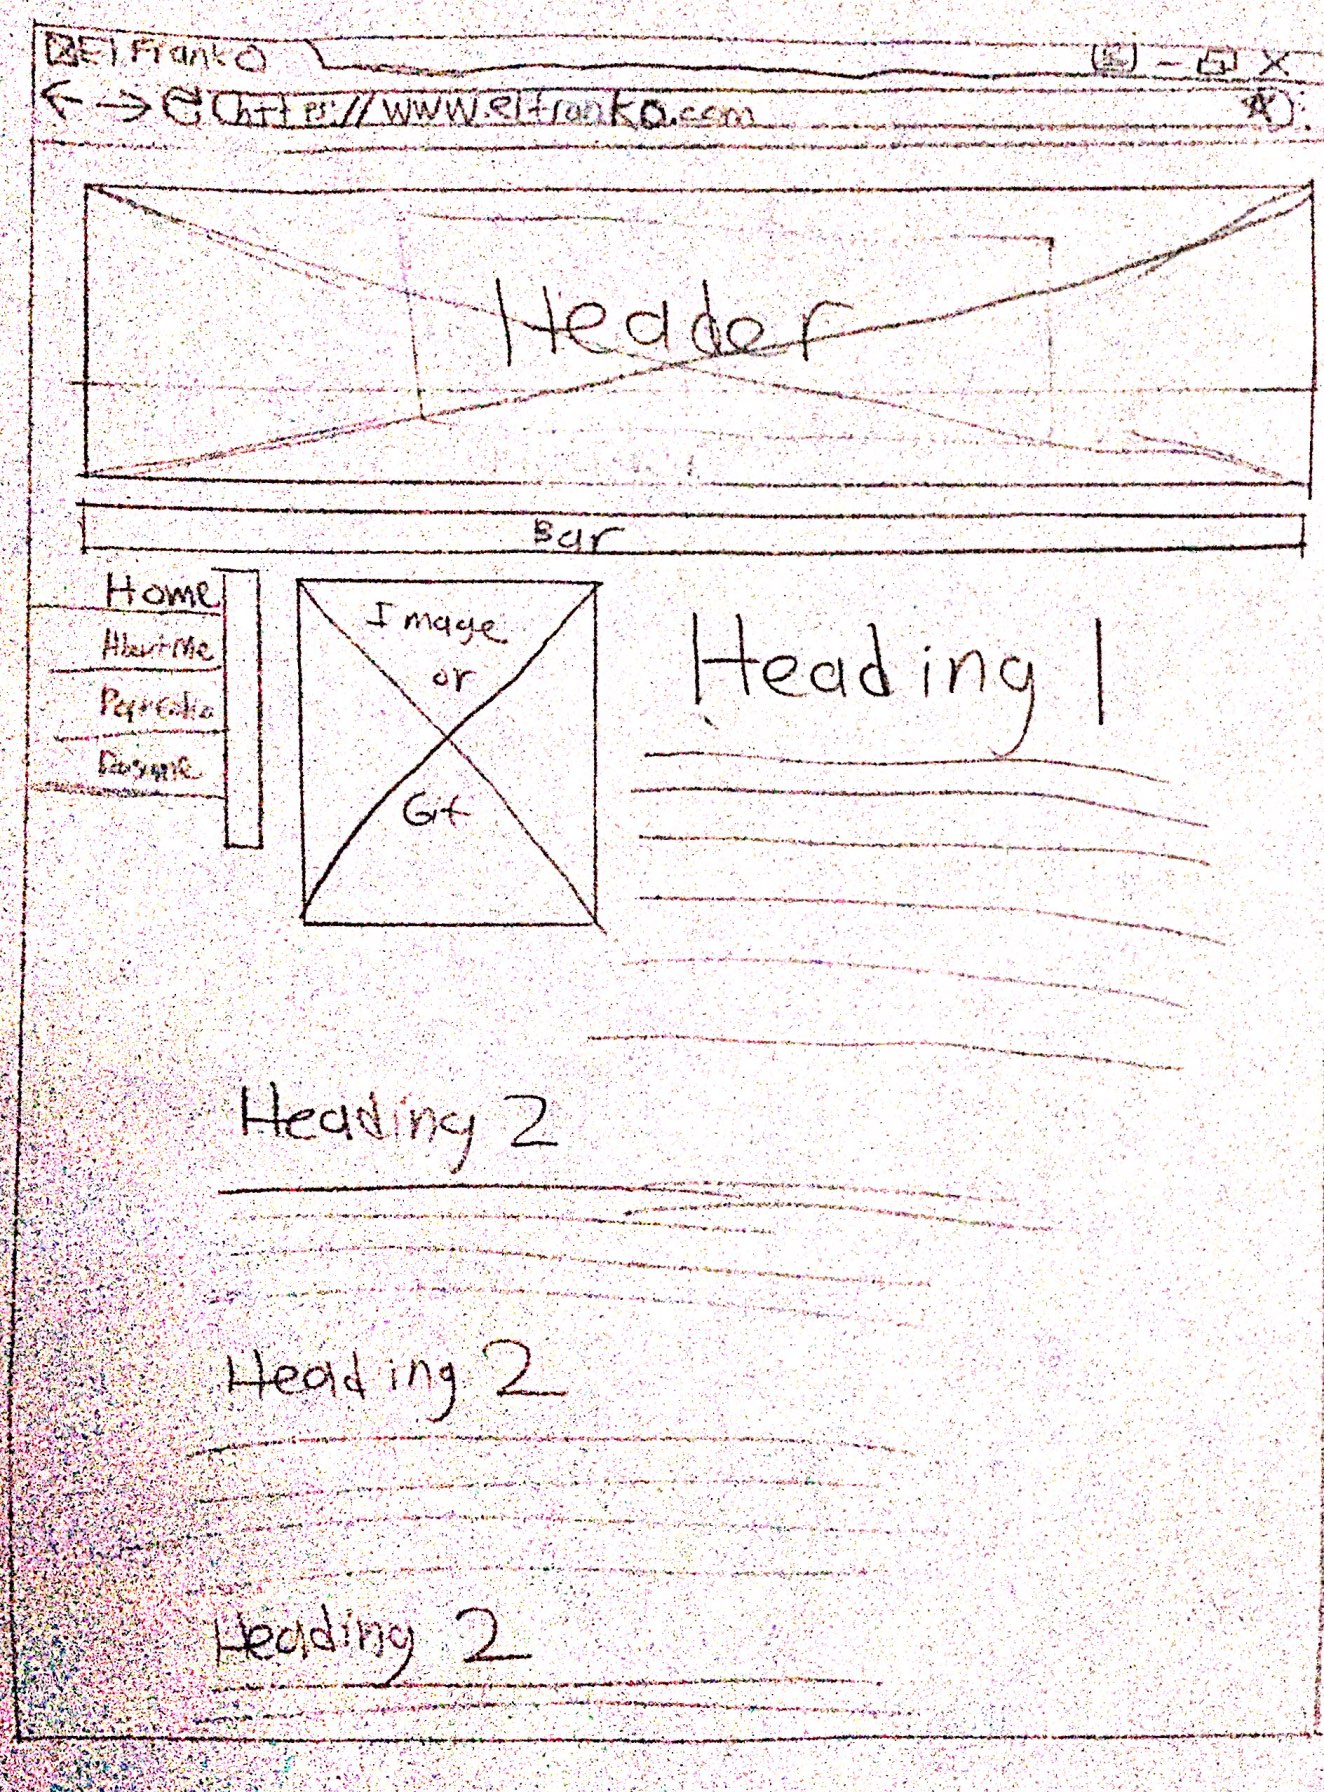 El Franko
https://www.elfranko.com
Header
Bar
Home
About Me
Portfolio
Resume
Image
or
Gif
Heading 1
Heading 2
Heading 2
Heading 2